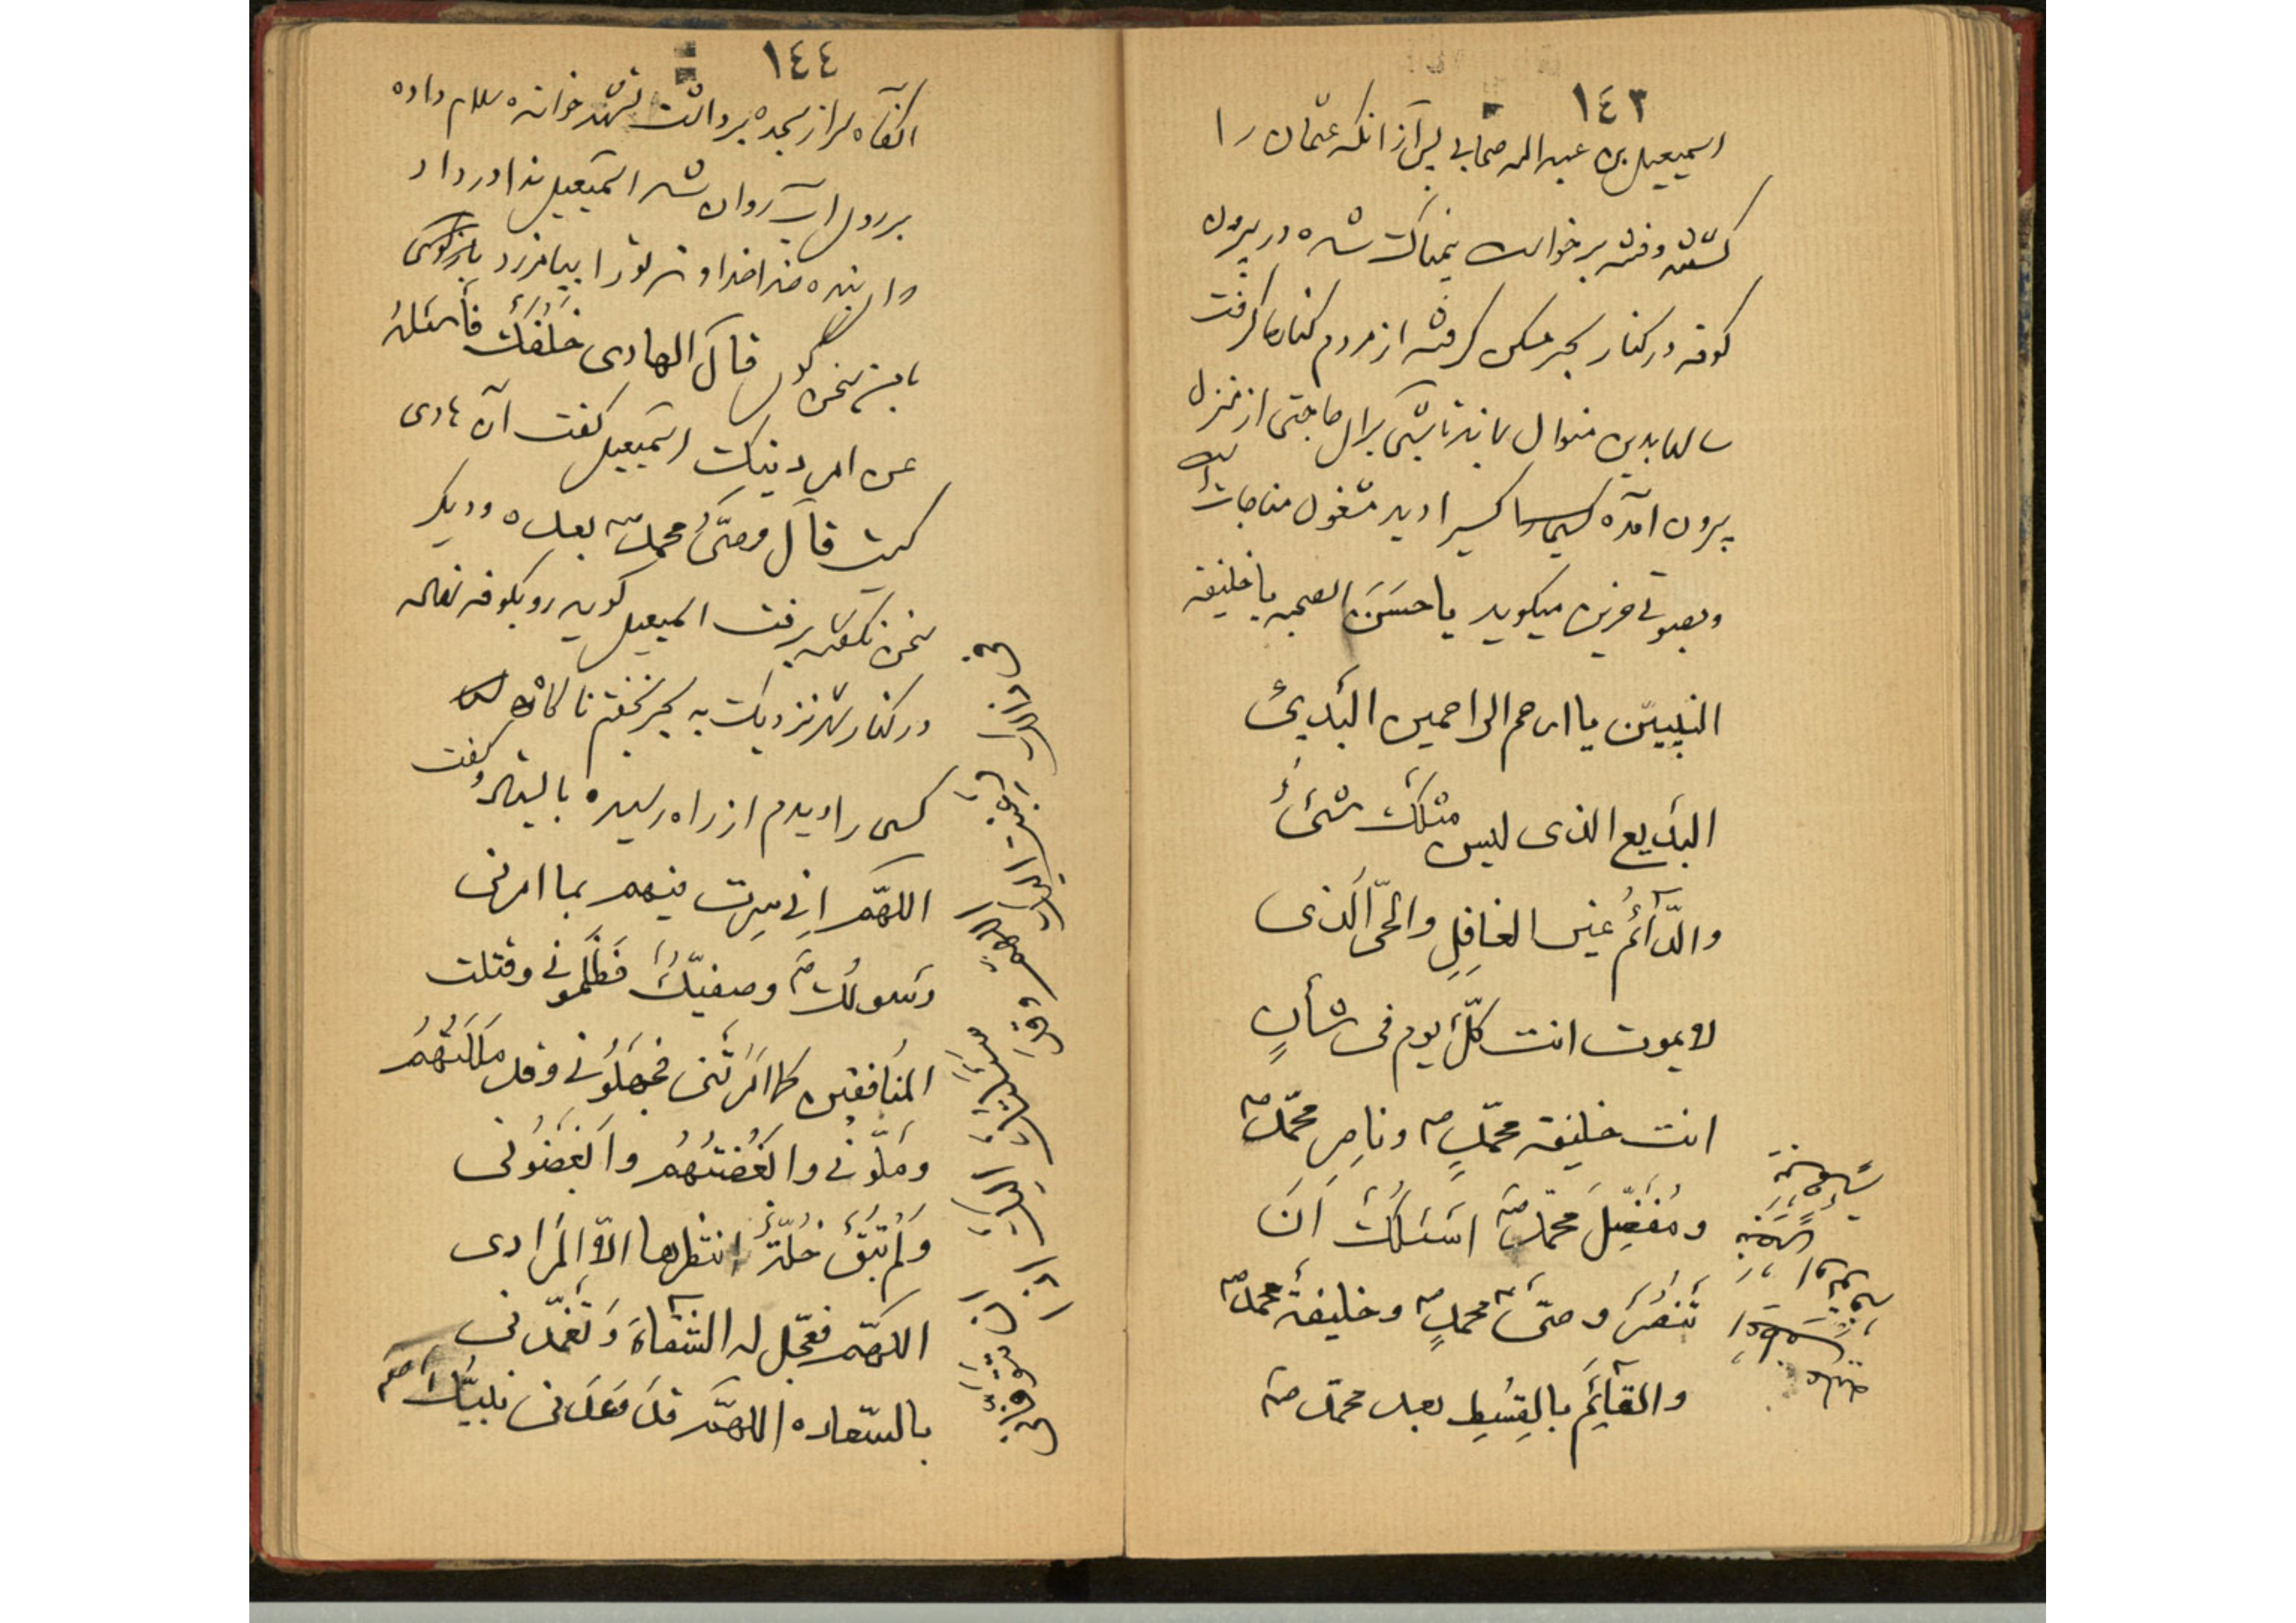 ١٤٣
اسمیعیل بن عبدالله صحابی پس از آنکه عثمان را
کشتند و فتنه برخواست غمناک شده در بیرون
کوفه در کنار بحر مسکن گرفته از مردم کناره گرفت
سالها بدین منوال ماند تا شبی برای حاجتی از منزل
بیرون آمده کسیرا دید مشغول مناجات است
و بصوتی حزین میگوید یا حسن الصحبه یا خلیفة
النبیین یا ارحم الراحمین البدئ
البدیع الذی لیس مثلک شئ
والدّآئم غیر الغافِلِ والحیّ الّذی
لا یموت انت کلّ یوم فی شأنٍ
انت خلیفة محمّدٍ ص و ناصر محمّد ص
و مُفَضِّل محمّد ص اسئلک اَن
تنصر وصیّ محمدٍ ص و خلیفة محمد ص
والقآئم بالقِسطِ بعد محمّد ص
١٤٤
آنگاه سر از سجده برداشت تشهد خوانده سلام داده
بر روی آب روان شد اسمیعیل ندا در داد
ای بنده خدا خداوند تو را بیامرزد
با من سخن گوی قال الهادی خَلفَک فاسئله
عن امر دینک اسمیعیل گفت آن هادی
کیست قال وصیّ محمد ص بعده و دیگر
سخن نگفته برفت اسمیعیل گوید رو بکوفه نهاده
در کنار شهر نزدیک به بحر نخفتم ناگاه
کسی را دیدم از راه رسیده بایستاد و گفت
اللهمّ انی سِرت فیهم بما امرنی
رسولک ص و صفیّک فظلمونی و قتلت
المنافقین کما امرتنی فجهلونی و قد مللتهم
و ملّونی و ابغضتهم و ابغضونی
ولم تبق خلّة انتظرها الّا المرادی
اللهمّ فعجّل له الشّقاء و تغمّدنی
بالسّعاده اللهمّ قد وعدنی نبیّک ص